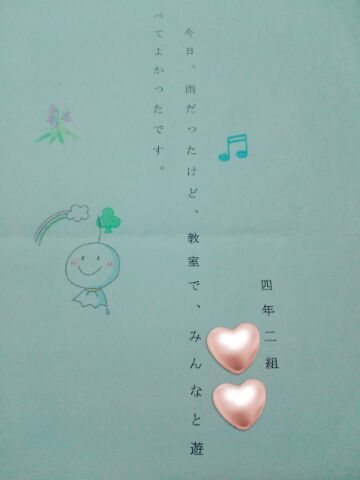 四年二組
今日、雨だったけど、教室で、みんなと遊
べてよかったです。